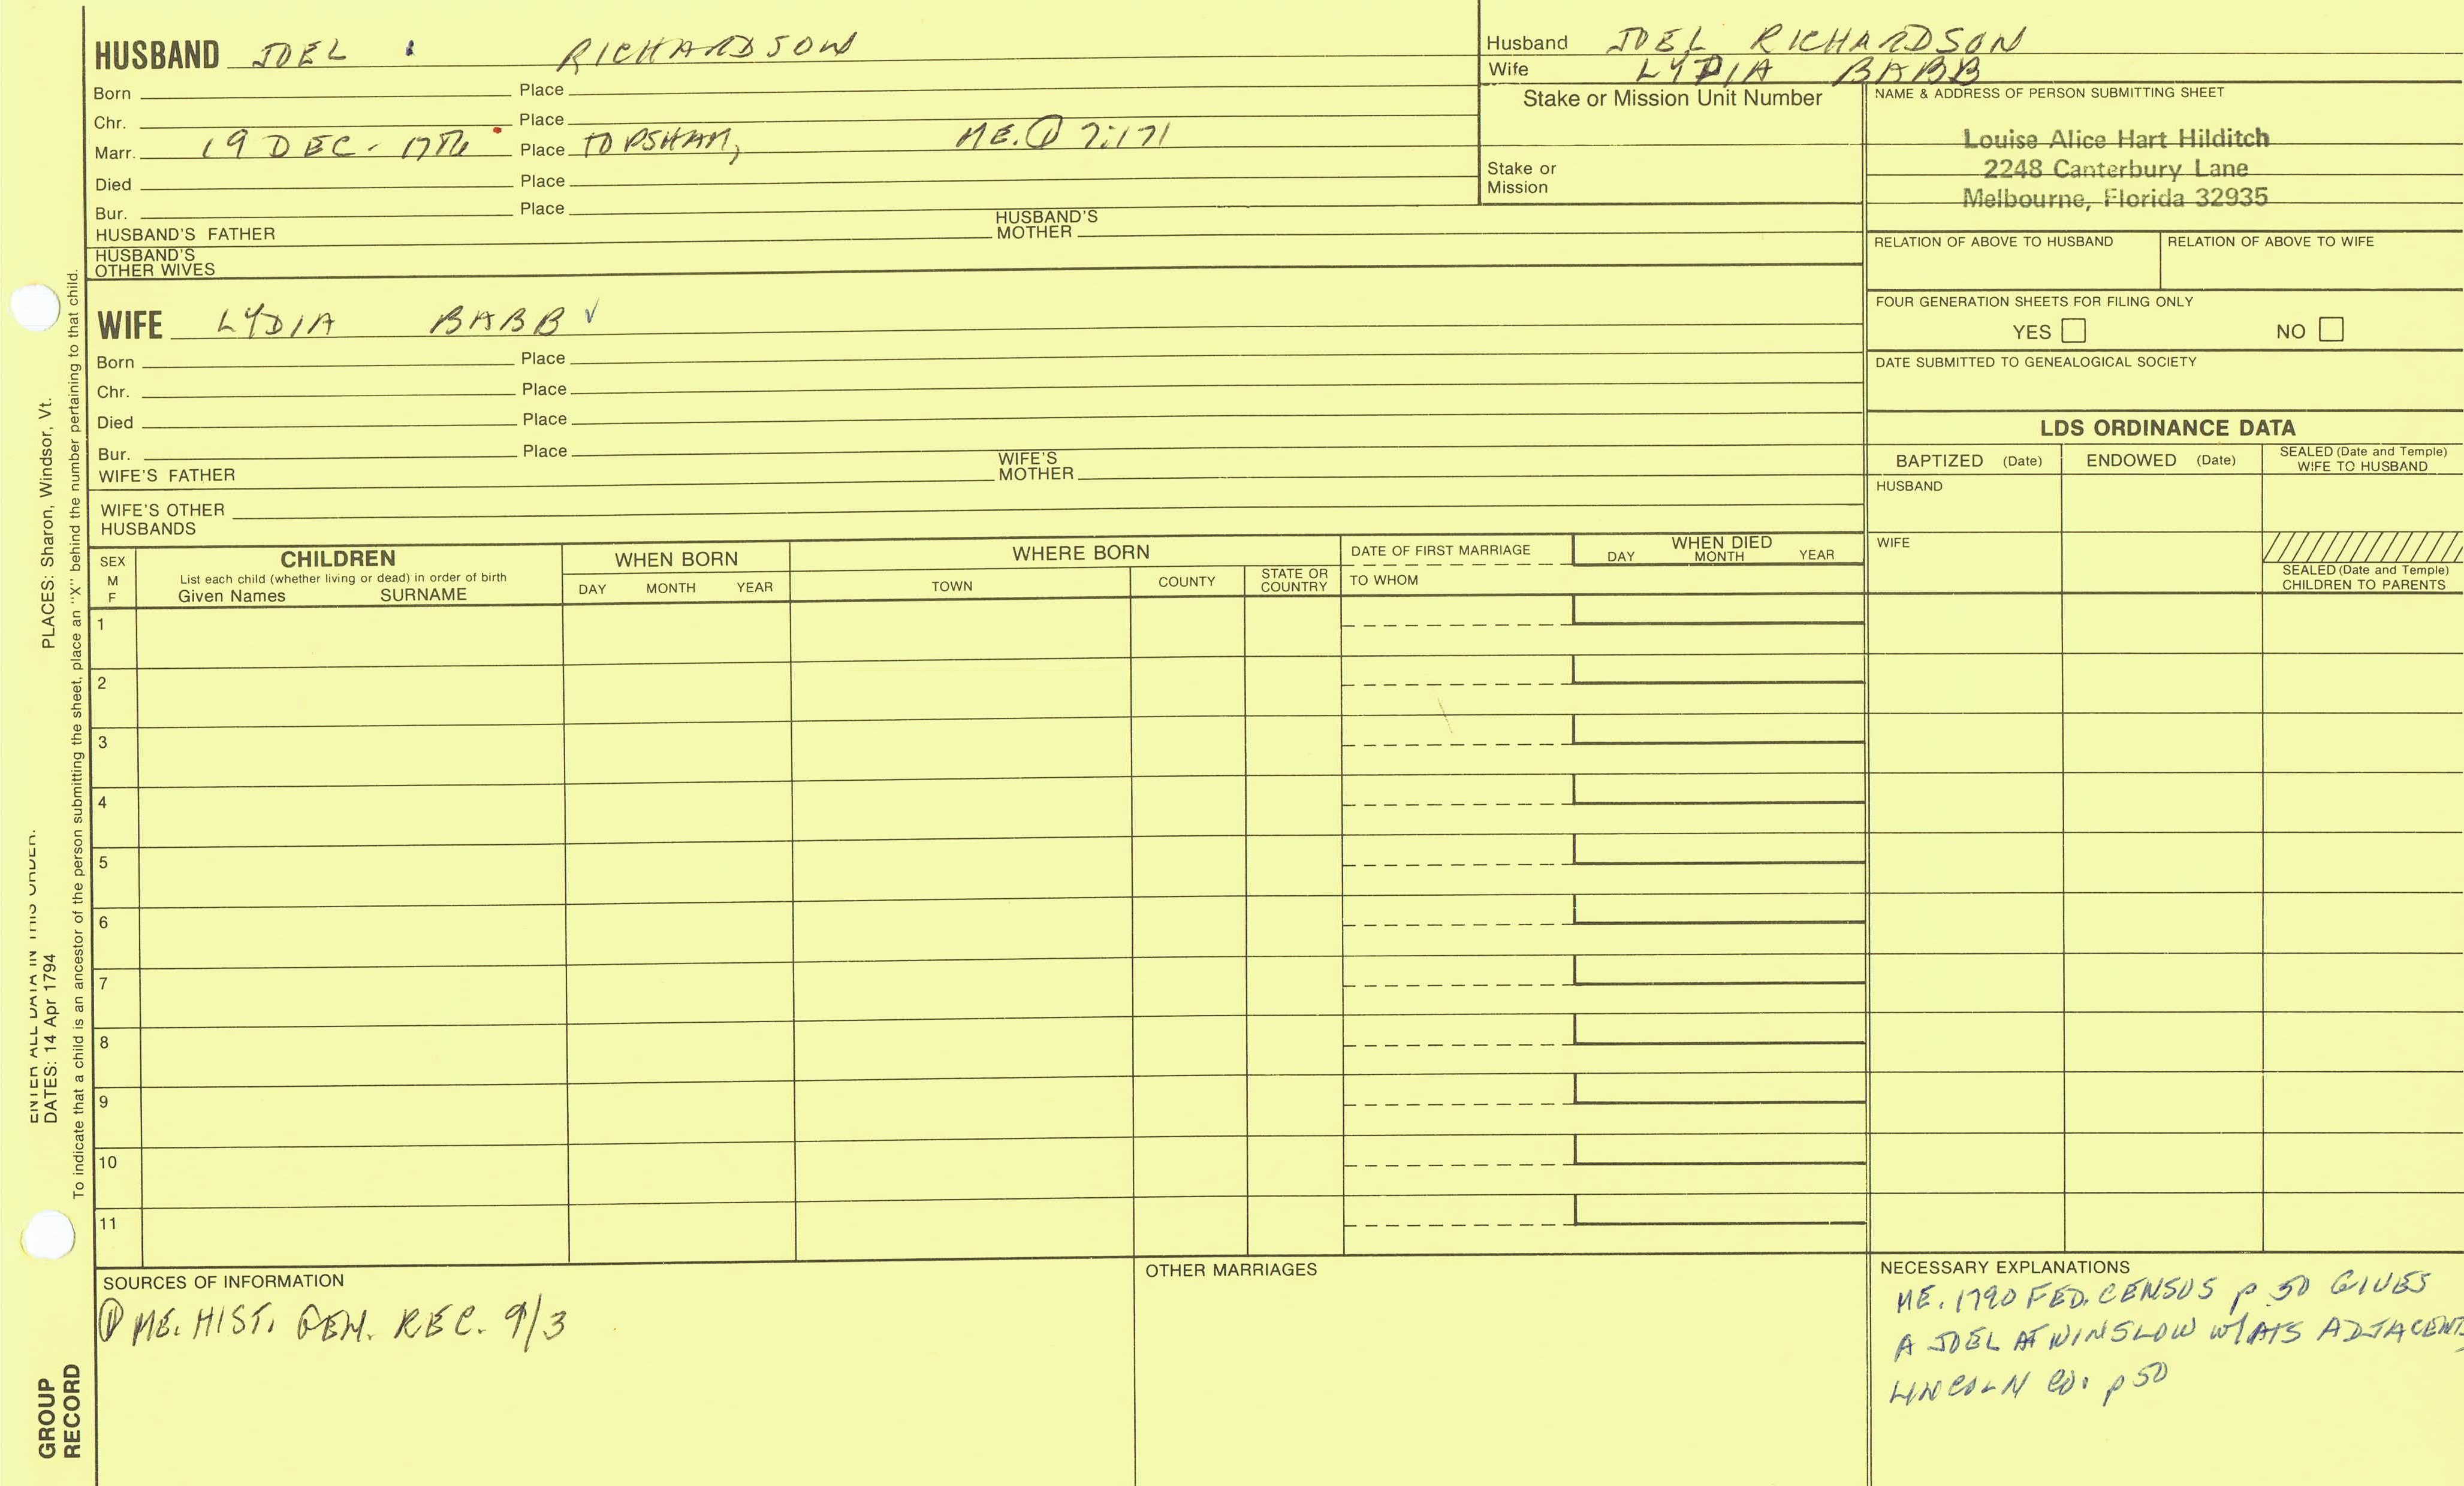 HUSBAND JOEL RICHARDSON
Born Place
Chr. Place
Marr. 19 DEC. Place TOPSHAM, ME. ① 7:171
Died Place
Bur. Place
HUSBAND'S FATHER HUSBAND'S MOTHER
HUSBAND'S OTHER WIVES
Husband JOEL RICHARDSON
Wife LYDIA BABB
Stake or Mission Unit Number
Stake or
Mission
NAME & ADDRESS OF PERSON SUBMITTING SHEET
Louise Alice Hart Hilditch
2248 Canterbury Lane
Melbourne, Florida 32935
RELATION OF ABOVE TO HUSBAND RELATION OF ABOVE TO WIFE
FOUR GENERATION SHEETS FOR FILING ONLY
YES NO
DATE SUBMITTED TO GENEALOGICAL SOCIETY
WIFE LYDIA BABB ✓
Born Place
Chr. Place
Died Place
Bur. Place
WIFE'S FATHER WIFE'S MOTHER
WIFE'S OTHER
HUSBANDS
LDS ORDINANCE DATA
BAPTIZED (Date) ENDOWED (Date) SEALED (Date and Temple) WIFE TO HUSBAND
HUSBAND
WIFE
SEALED (Date and Temple)
CHILDREN TO PARENTS
SEX
M
F
CHILDREN
List each child (whether living or dead) in order of birth
Given Names SURNAME
WHEN BORN
DAY MONTH YEAR
WHERE BORN
TOWN COUNTY STATE OR COUNTRY
DATE OF FIRST MARRIAGE
TO WHOM
WHEN DIED
DAY MONTH YEAR
1
2
3
4
5
6
7
8
9
10
11
SOURCES OF INFORMATION
① ME. HIST. GEN. REC. 9/3
OTHER MARRIAGES
NECESSARY EXPLANATIONS
ME. 1790 FED. CENSUS p 50 GIVES
A JOEL AT WINSLOW ADJACENT
LINCOLN CO. p 50
ENTER ALL DATA IN THIS ORDER.
DATES: 14 Apr 1794 PLACES: Sharon, Windsor, Vt.
To indicate that a child is an ancestor of the person submitting the sheet, place an "X" behind the number pertaining to that child.
GROUP
RECORD